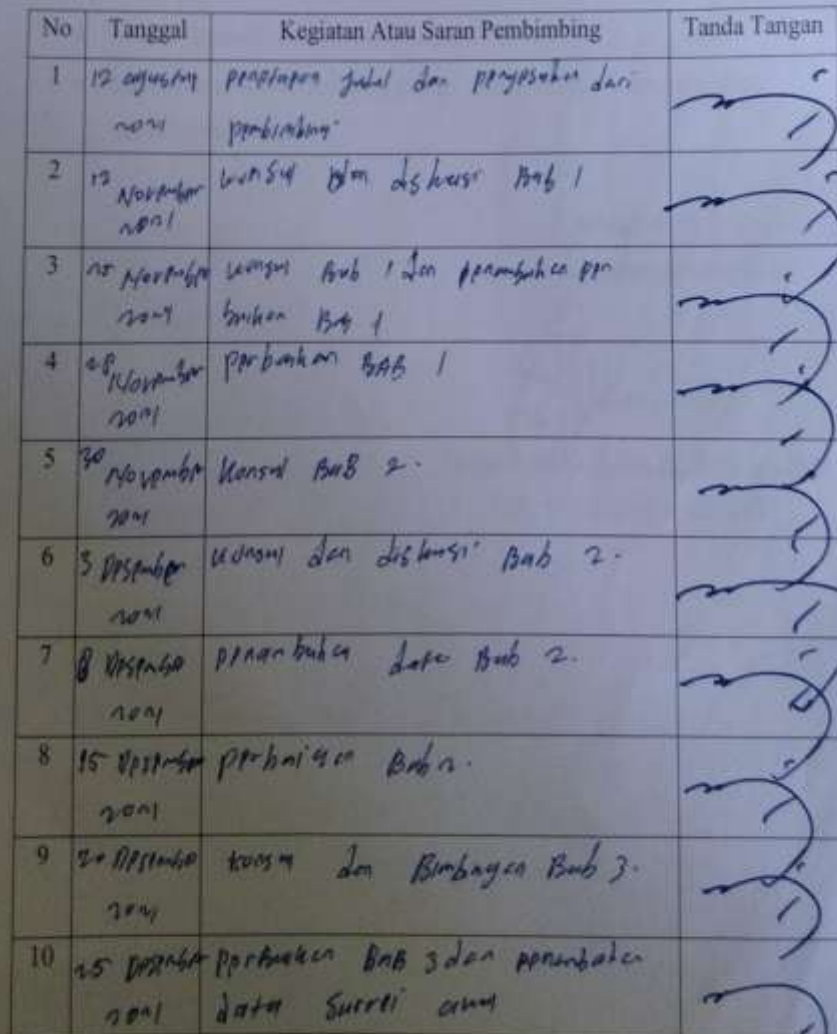 No Tanggal Kegiatan Atau Saran Pembimbing Tanda Tangan
1 12 agustus penetapan judul dan pengesahan dari
2021 pembimbing
2 12 November konsul dan diskusi Bab 1
2021
3 25 November konsul Bab 1 dan penambahan per
2021 baikan Bab 1
4 28 November perbaikan BAB 1
2021
5 30 November Konsul BAB 2.
2021
6 3 Desember konsul dan diskusi Bab 2.
2021
7 8 Desember penambahan data Bab 2.
2021
8 15 Desember perbaikan Bab 2.
2021
9 20 Desember konsul dan Bimbingan Bab 3.
2021
10 25 Desember perbaikan BAB 3 dan penambahan
2021 data survei awal